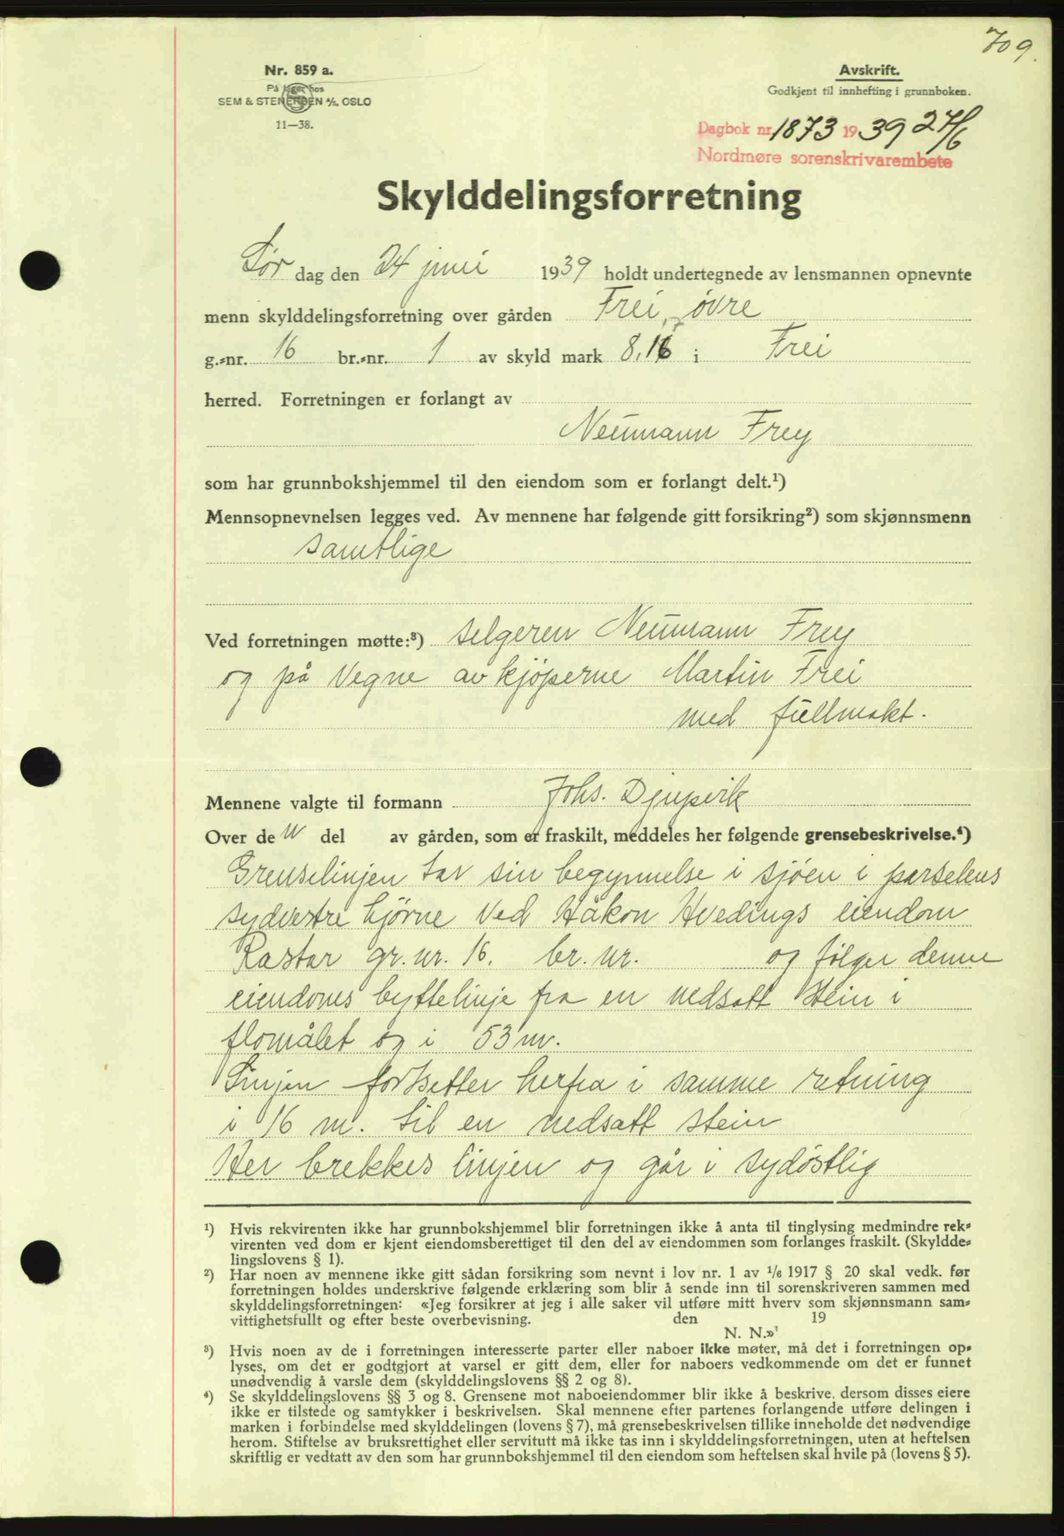 709.
Nr. 859 a.
På lager hos
SEM & STENERSEN A/S. OSLO
11—38.
Avskrift.
Godkjent til innhefting i grunnboken.
Dagbok nr. 1873 1939 27/6
Nordmøre sorenskrivarembete
Skylddelingsforretning
Lør dag den 24 juni 1939 holdt undertegnede av lensmannen opnevnte
menn skylddelingsforretning over gården Frei, øvre
g.-nr. 16 br.-nr. 1 av skyld mark 8,16 i Frei
herred. Forretningen er forlangt av
Neumann Frey
som har grunnbokshjemmel til den eiendom som er forlangt delt.¹)
Mennsopnevnelsen legges ved. Av mennene har følgende gitt forsikring²) som skjønnsmenn
samtlige
Ved forretningen møtte:³) selgeren Neumann Frey
og på Vegne av kjøperne Martin Frei
med fullmakt.
Mennene valgte til formann Johs. Djupvik
Over de n del av gården, som er fraskilt, meddeles her følgende grensebeskrivelse.⁴)
Grenselinjen tar sin begynnelse i sjøen i parselens
sydvestre hjørne ved Håkon Hvedings eiendom
Rastar gr. nr. 16. br. nr. og følger denne
eiendoms byttelinje fra en nedsatt stein i
flomålet og i 53 m.
Linjen fortsetter herfra i samme retning
i 16 m. til en nedsatt stein
Her brekkes linjen og går i sydøstlig
¹) Hvis rekvirenten ikke har grunnbokshjemmel blir forretningen ikke å anta til tinglysing medmindre rek-
virenten ved dom er kjent eiendomsberettiget til den del av eiendommen som forlanges fraskilt. (Skyldde-
lingslovens § 1).
²) Har noen av mennene ikke gitt sådan forsikring som nevnt i lov nr. 1 av 1/6 1917 § 20 skal vedk. før
forretningen holdes underskrive følgende erklæring som blir å sende inn til sorenskriveren sammen med
skylddelingsforretningen: «Jeg forsikrer at jeg i alle saker vil utføre mitt hverv som skjønnsmann sam-
vittighetsfullt og efter beste overbevisning. den 19
N. N.»
³) Hvis noen av de i forretningen interesserte parter eller naboer ikke møter, må det i forretningen op-
lyses, om det er godtgjort at varsel er gitt dem, eller for naboers vedkommende om det er funnet
unødvendig å varsle dem (skylddelingslovens §§ 2 og 8).
⁴) Se skylddelingslovens §§ 3 og 8. Grensene mot naboeiendommer blir ikke å beskrive, dersom disses eiere
ikke er tilstede og samtykker i beskrivelsen. Skal mennene efter partenes forlangende utføre delingen i
marken i forbindelse med skylddelingen (lovens § 7), må grensebeskrivelsen tillike inneholde det nødvendige
herom. Stiftelse av bruksrettighet eller servitutt må ikke tas inn i skylddelingsforretningen, uten at heftelsen
skriftlig er vedtatt av den som har grunnbokshjemmel til den eiendom som heftelsen skal hvile på (lovens § 5).